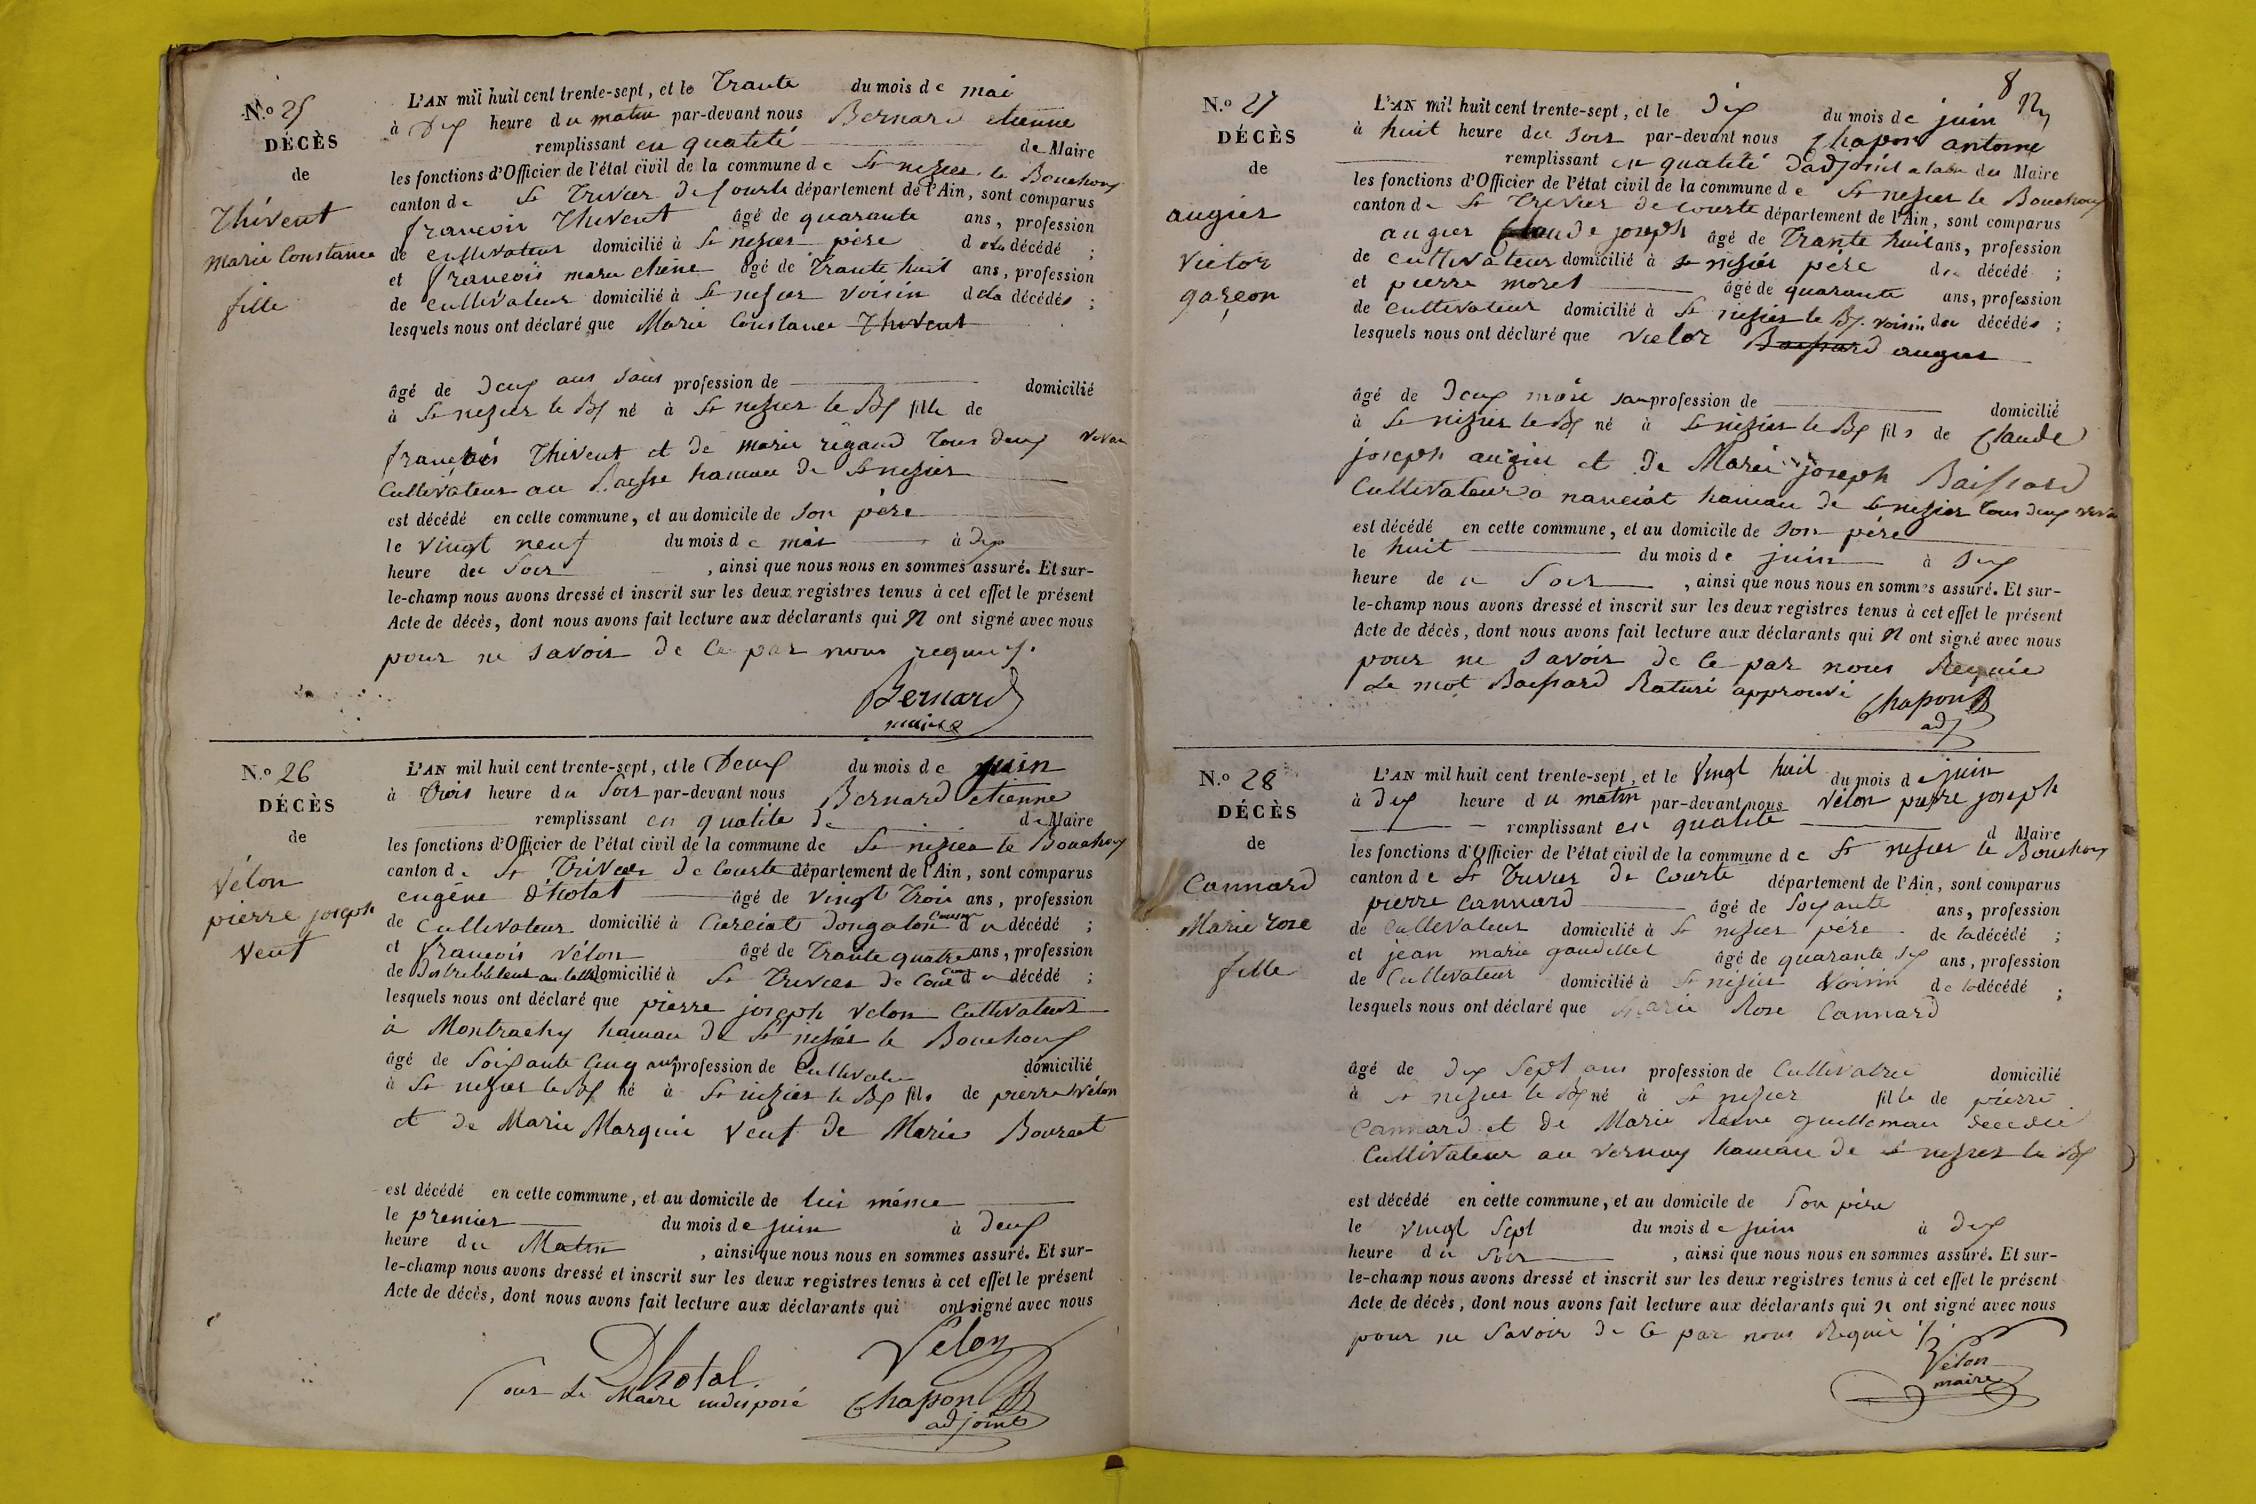 N.o 25
DÉCÈS
de
Thivent
Marie Constance
fille
L'AN mil huit cent trente-sept, et le Trante du mois de mai
à Dix heure du matin par-devant nous Bernard etienne
remplissant en qualité de Maire
les fonctions d'Officier de l'état civil de la commune de St nizier le Bouchoux
canton de St Trivier De Courte département de l'Ain, sont comparus
françois Thivent âgé de quarante ans, profession
de cultivateur domicilié à St nizier père de la décédé ;
et françois marie chêne âgé de Trante huit ans, profession
de cultivateur domicilié à St nizier voisin de la décédée ;
lesquels nous ont déclaré que Marie Constance Thivent
âgé de Deux ans sans profession de domicilié
à St nizier le Bx né à St nizier le Bx fille de
françois Thivent et de marie rigaud Tous deux vivan
Cultivateur au hameau de St nizier
est décédé en cette commune, et au domicile de son père
le vingt neuf du mois de mai à Dix
heure du soir , ainsi que nous nous en sommes assuré. Et sur-
le-champ nous avons dressé et inscrit sur les deux registres tenus à cet effet le présent
Acte de décès, dont nous avons fait lecture aux déclarants qui n ont signé avec nous
pour ne savoir de ce par nous requis.
Bernard
maire
N.o 26
DÉCÈS
de
vélon
pierre joseph
veuf
L'AN mil huit cent trente-sept, et le Deux du mois de juin
à Trois heure du soir par-devant nous Bernard etienne
remplissant en qualité de de Maire
les fonctions d'Officier de l'état civil de la commune de St nizier le Bouchoux
canton de St Trivier De Courte département de l'Ain, sont comparus
eugène d'hotal âgé de vingt Trois ans, profession
de Cultivateur domicilié à Curciat Dongalon Cousin du décédé ;
et françois vélon âgé de Trante quatre ans, profession
de domicilié à St Trivier de Cour du décédé ;
lesquels nous ont déclaré que pierre joseph vélon Cultivateur
à Montrachy hameau de St nizier le Bouchoux
âgé de Soixante Cinq ans profession de Cultivateur domicilié
à St nizier le Bx né à St nizier le Bx fils de pierre vélon
et de Marie Marguin veuf de Marie
est décédé en cette commune, et au domicile de lui même
le premier du mois de juin à Deux
heure du Matin , ainsi que nous nous en sommes assuré. Et sur-
le-champ nous avons dressé et inscrit sur les deux registres tenus à cet effet le présent
Acte de décès, dont nous avons fait lecture aux déclarants qui ont signé avec nous
Dhotal Velon
Pour le Maire indisposé Chapon
adjoint
8
N.o 27
DÉCÈS
de
augier
victor
garçon
L'AN mil huit cent trente-sept, et le Dix du mois de juin
à huit heure du soir par-devant nous Chapon antoine
remplissant en qualité d'adjoint du Maire
les fonctions d'Officier de l'état civil de la commune de St nizier le Bouchoux
canton de St Trivier de Courte département de l'Ain, sont comparus
augier Claude joseph âgé de Trante huit ans, profession
de cultivateur domicilié à St nizier père du décédé ;
et pierre morel âgé de quarante ans, profession
de cultivateur domicilié à St nizier le Bx. voisin du décédés ;
lesquels nous ont déclaré que victor Baissard augier
âgé de Deux mois san profession de domicilié
à St nizier le Bx né à St nizier le Bx fils de Claude
joseph augier et de Marie joseph Baissard
Cultivateur à nanciat hameau de St nizier Tous deux viva
est décédé en cette commune, et au domicile de son père
le huit du mois de juin à Dix
heure de u Soir , ainsi que nous nous en sommes assuré. Et sur-
le-champ nous avons dressé et inscrit sur les deux registres tenus à cet effet le présent
Acte de décès, dont nous avons fait lecture aux déclarants qui n ont signé avec nous
pour ne savoir de ce par nous Requie
Le mot Baissard Raturé approuvé Chapon
adj
N.o 28
DÉCÈS
de
Cannard
Marie rose
fille
L'AN mil huit cent trente-sept, et le vingt huit du mois de juin
à Dix heure du matin par-devant nous vélon pierre joseph
remplissant en qualité d Maire
les fonctions d'Officier de l'état civil de la commune de St nizier le Bouchoux
canton de St Trivier de Courte département de l'Ain, sont comparus
pierre Cannard âgé de Soixante ans, profession
de Cultivateur domicilié à St nizier père de la décédé ;
et jean marie gaudillet âgé de quarante six ans, profession
de Cultivateur domicilié à St nizier voisin de la décédé ;
lesquels nous ont déclaré que Marie Rose Cannard
âgé de Dix Sept ans profession de Cultivatrice domicilié
à St nizier le Bx né à St nizier fille de pierre
Cannard et de Marie Reine guilleman decedée
Cultivateur au vernay hameau de St nizier le Bx
est décédé en cette commune, et au domicile de Son père
le vingt Sept du mois de juin à Dix
heure du Soir , ainsi que nous nous en sommes assuré. Et sur-
le-champ nous avons dressé et inscrit sur les deux registres tenus à cet effet le présent
Acte de décès, dont nous avons fait lecture aux déclarants qui n ont signé avec nous
pour ne Savoir de ce par nous Requie
Vélon
maire